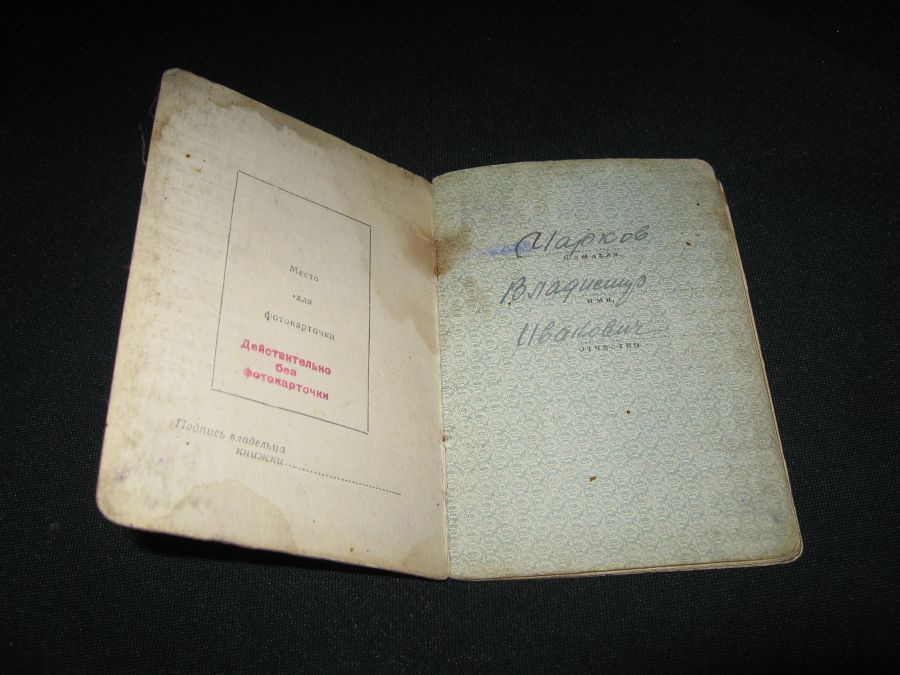 Место
для
фотокарточки
Действительно
без
фотокарточки
Подпись владельца
книжки
фамилия
Владимир
имя
Иванович
отчество